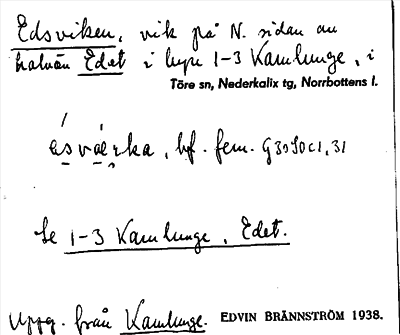 Edsviken, vik på N. sidan av
halvön Edet i byn 1-3 Kamlunge, i
Töre sn, Nederkalix tg, Norrbottens l.
bf. fem.
Se 1-3 Kamlunge, Edet.
Uppg. från Kamlunge. EDVIN BRÄNNSTRÖM 1938.